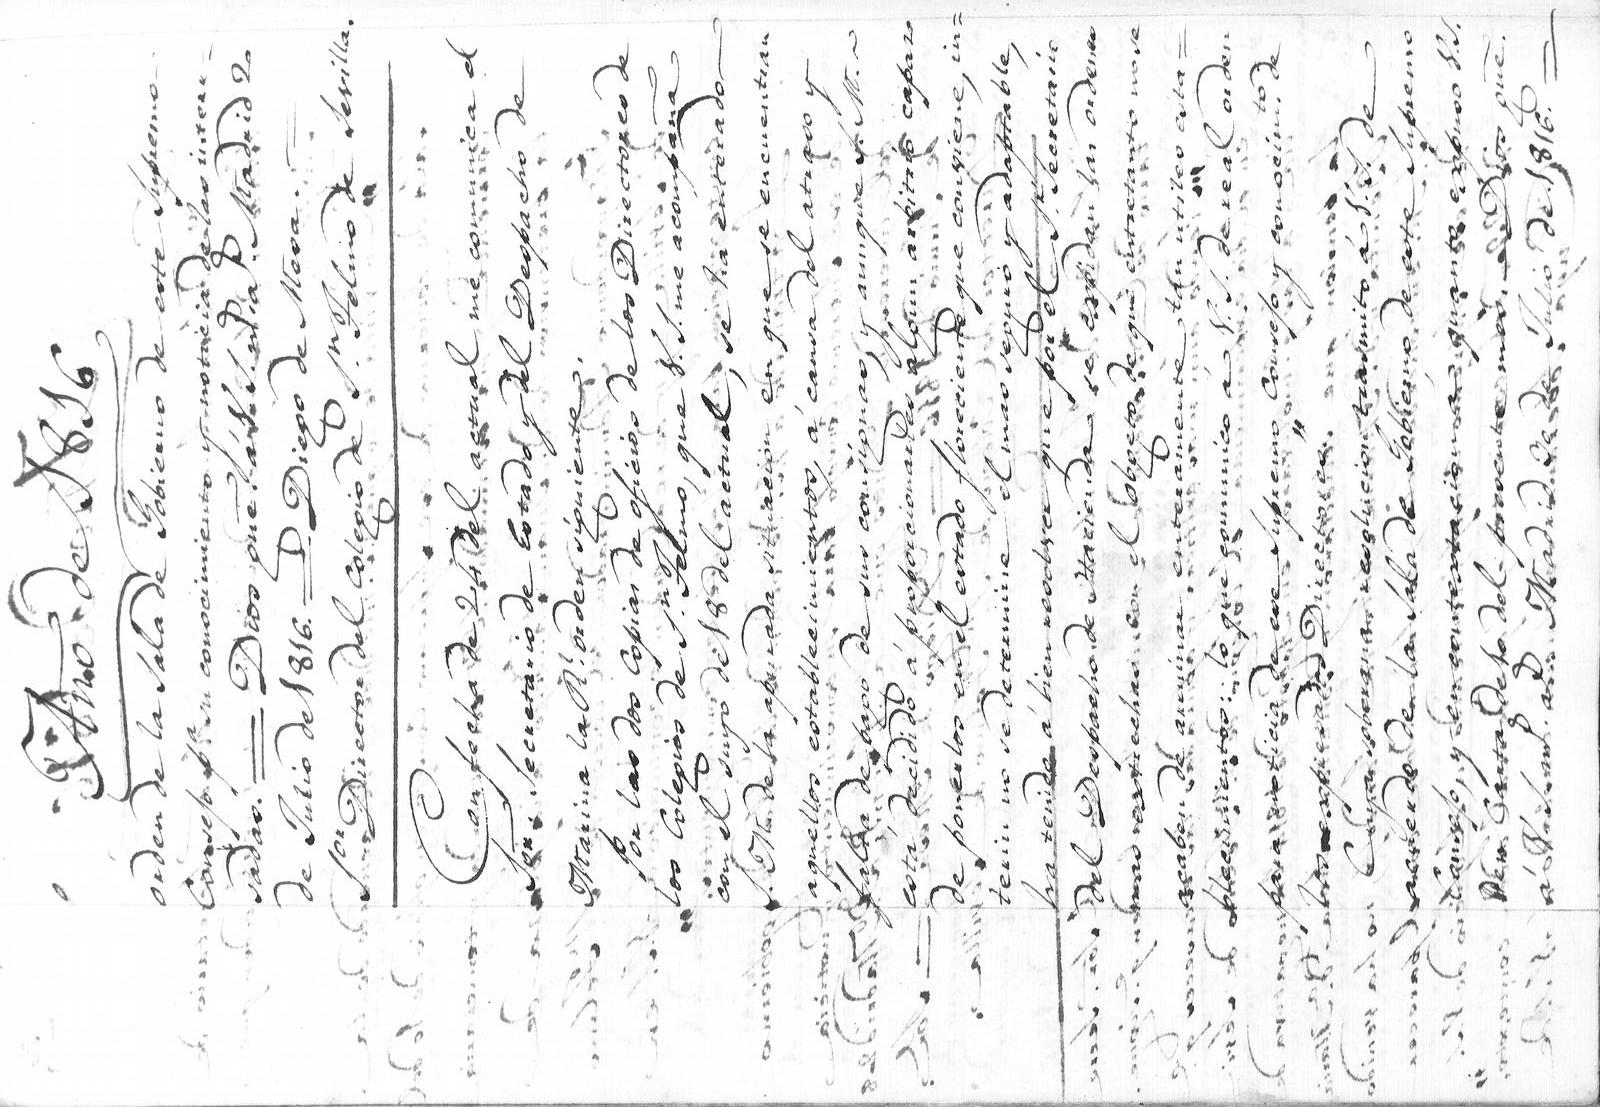 Año de 1816
orden de la Sala de Gobierno de este Supremo
Consejo pa. su conocimiento y noticia de los intere-
sados. = Dios gue. á V.S. ms. as. Madrid 2
de Julio de 1816. = D. Diego de Mesa. =
Sor. Director del Colegio de Sn. Telmo de Sevilla.
Con fecha de 24 del actual me comunica el
Sor. Secretario de Estado y del Despacho de
Marina la Rl. orden siguiente.
Por las dos Copias de oficios de los Directores de
los Colegios de Sn. Telmo, que V.S. me acompaña
con el suyo de 18 del actual, se ha enterado
S.M. de la apurada situacion en que se encuentran
aquellos establecimientos, á causa del atraso y
falta de pago de sus consignaes. y aunque S.M.
está decidido á proporcionarles algun arbitrio capaz
de ponerlos en el estado floreciente que conviene, in=
terin se determine el mas seguro y adaptable,
ha tenido á bien resolver que por el Sr. Secretario
del Despacho de Hacienda se expidan las ordenes
mas estrechas con el objeto de que entretanto no se
acaben de arruinar enteramente tan utiles esta=
blecimientos: lo que comunico á V.S. de real orden
para noticia de ese Supremo Consejo y conocimto. de
los expresados Directores.
Cuya soberana resolucion trasmito á V.S. de
acuerdo de la Sala de Gobierno de este Supremo
Consejo, y en contestacion á quanto expuso V.S.
en Carta de 10 del presente mes. = Dios gue.
á V.S. ms. as. Madrid de Julio de 1816. =